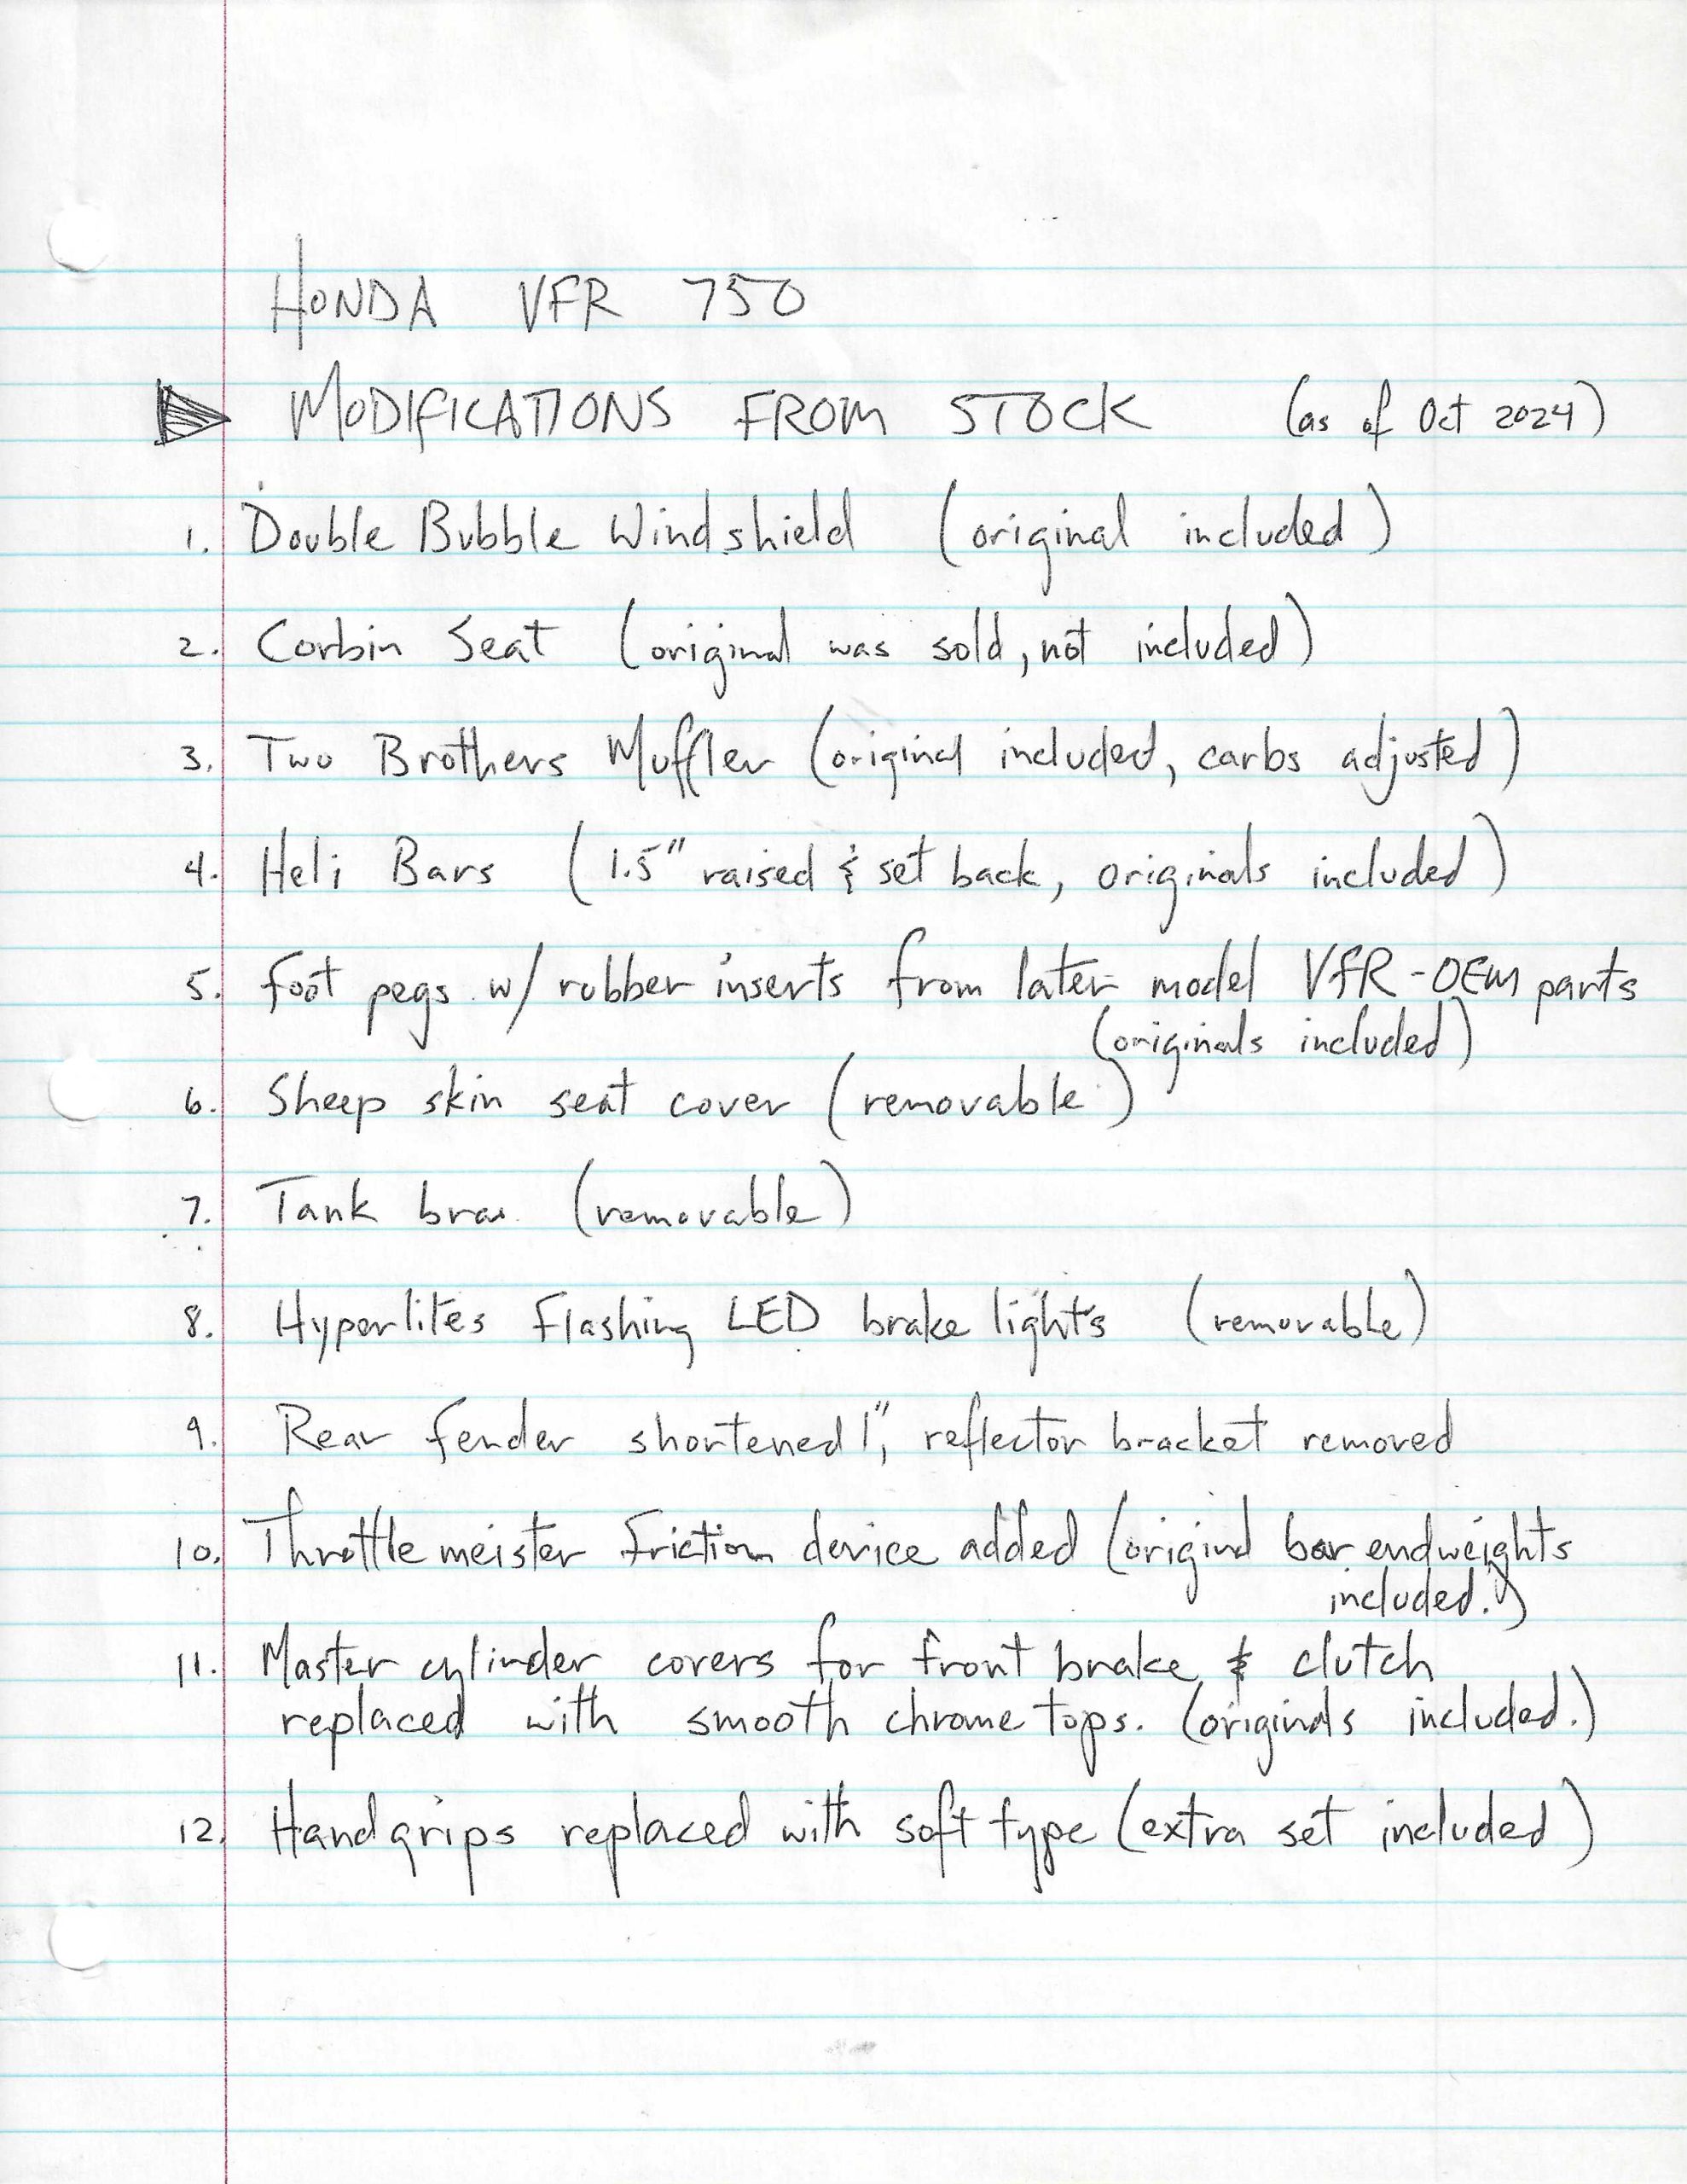 HONDA VFR 750
MODIFICATIONS FROM STOCK (as of Oct 2024)
1. Double Bubble Windshield (original included)
2. Corbin Seat (original was sold, not included)
3. Two Brothers Muffler (original included, carbs adjusted)
4. Heli Bars (1.5" raised & set back, originals included)
5. Foot pegs w/ rubber inserts from later model VFR - OEM parts
(originals included)
6. Sheep skin seat cover (removable)
7. Tank bra (removable)
8. Hyperlites Flashing LED brake lights (removable)
9. Rear fender shortened 1", reflector bracket removed
10. Throttlemeister friction device added (original bar endweights
included.)
11. Master cylinder covers for front brake & clutch
replaced with smooth chrome tops. (originals included.)
12. Handgrips replaced with soft type (extra set included)